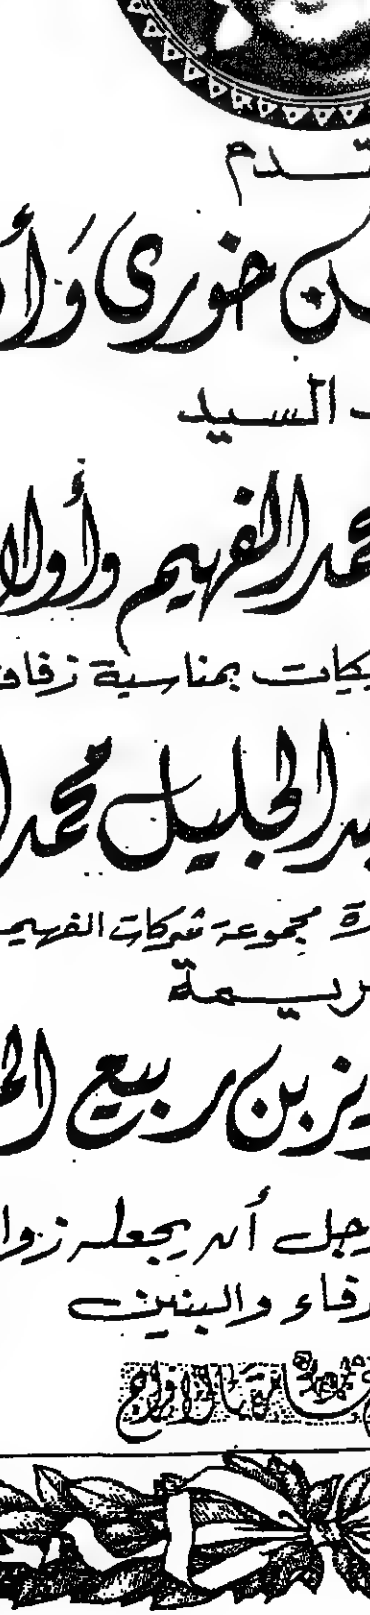 تقدم
حسن خوري وأ
السيد
محمد الفهيم وأولا
يكات بمناسبة زفاف
عبد الجليل محمد ا
رة مجموعة شركات الفهيم
كريمة
ـزيز بن ربيع الحـ
وجل أن يجعله زوا
رفاء والبنين